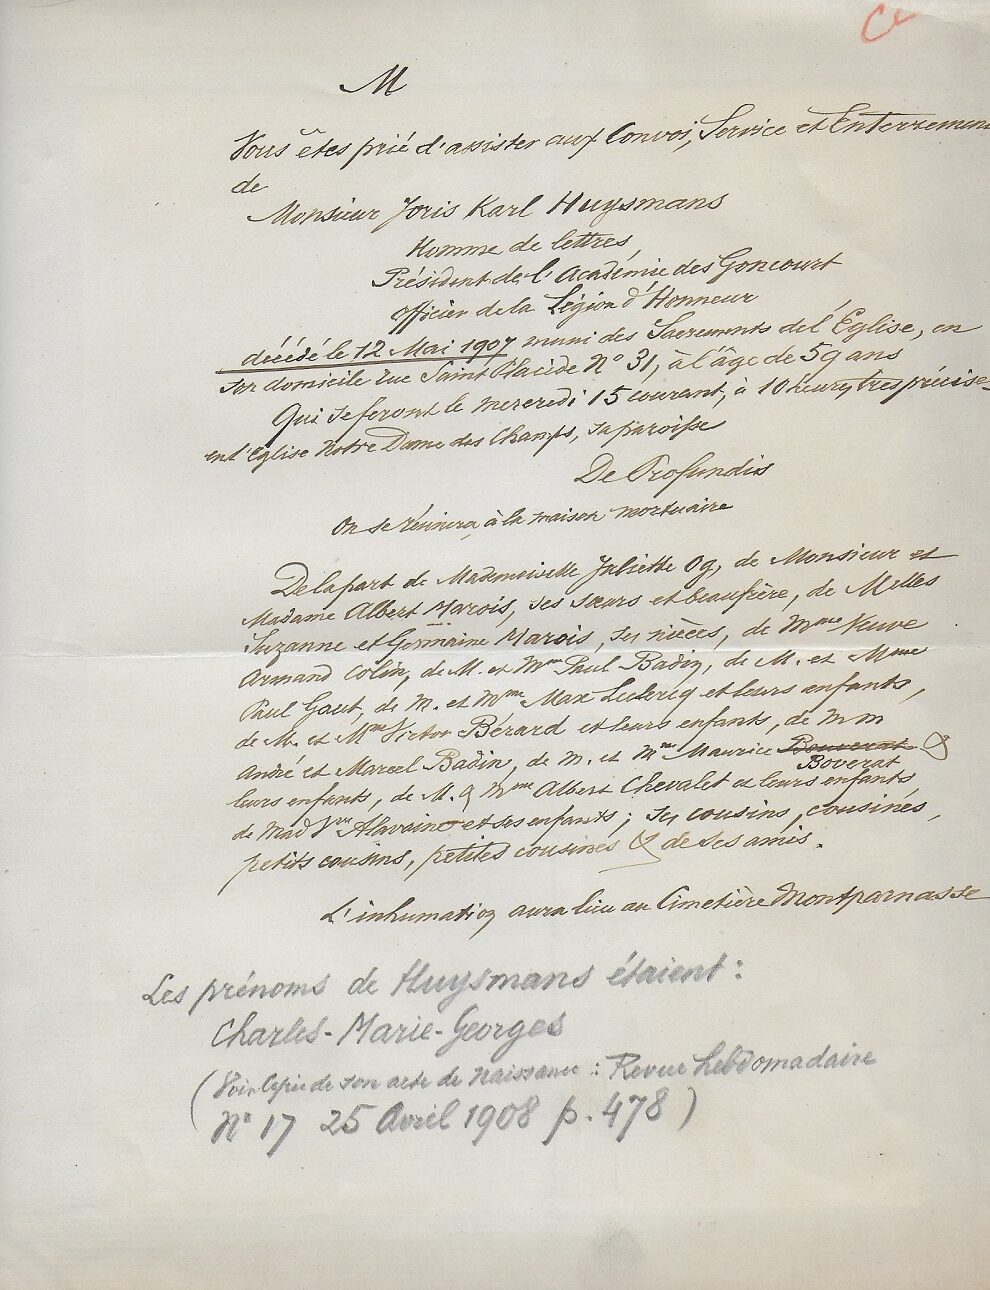 M
Vous êtes prié d'assister aux Convoi, Service et Enterrement
de
Monsieur Joris Karl Huysmans
Homme de lettres,
Président de l'Académie des Goncourt
officier de la Légion d'Honneur
décédé le 12 Mai 1907 muni des Sacrements de l'Église, en
son domicile rue Saint Placide N° 31, à l'âge de 59 ans
Qui se feront le mercredi 15 courant, à 10 heures très précise
en l'Eglise Notre Dame des Champs, sa paroisse
De Profundis
On se réunira à la maison mortuaire
De la part de Mademoiselle Juliette Og, de Monsieur et
Madame Albert Marois, ses sœurs et beaufrère, de Melles
Suzanne et Germaine Marois, ses nièces, de Mme Veuve
Armand Colin, de M. et Mme Paul Badin, de M. et Mme
Paul Gaut, de M. et Mme Max Leclercq et leurs enfants,
de M. et Mme Victor Bérard et leurs enfants, de MM
André et Marcel Badin, de M. et Mme Maurice Bouverat &
Boverat
leurs enfants, de M. & Mme Albert Chevalet et leurs enfants
de Mad Vve Alavaine et ses enfants; ses cousins, cousines,
petits cousins, petites cousines & de ses amis.
L'inhumation aura lieu au Cimetière Montparnasse
Les prénoms de Huysmans étaient :
Charles-Marie-Georges
(Voir copie de son acte de naissance : Revue hebdomadaire
N° 17 25 Avril 1908 p. 478)